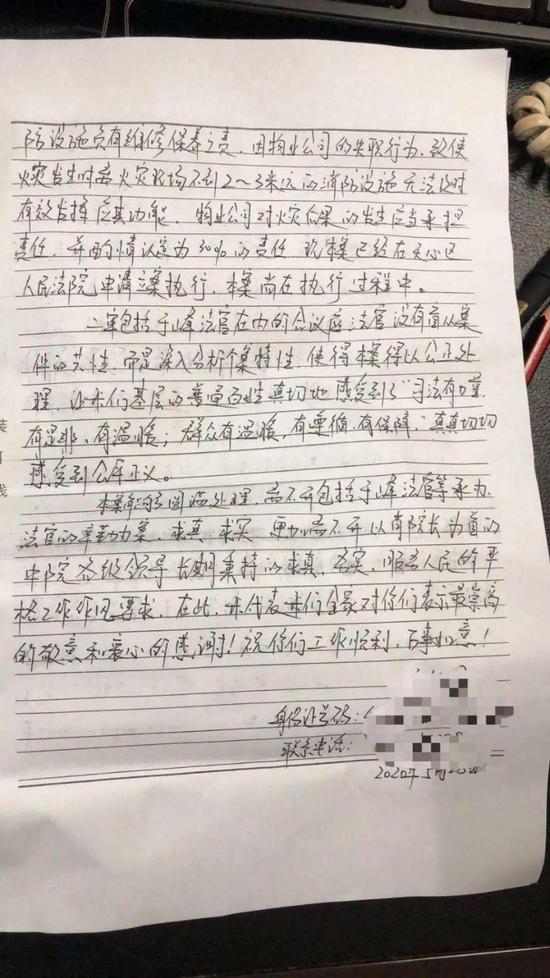 防设施负有维修保养之责，因物业公司的失职行为，致使
火灾发生时离火灾现场不到2～3米远的消防设施无法及时
有效发挥应其功能，物业公司对火灾后果的发生应当承担
责任，并酌情认定为30%的责任，现本案已经在天心区
人民法院申请立案执行，本案尚在执行过程中。
二审包括于峰法官在内的合议庭法官没有简从案
件的共性，而是深入分析个案特性，使得本案得以公正处
理，让我们基层的普通百姓真切地感受到了“司法有力量、
有是非、有温暖；群众有温暖，有遵循，有保障，真真切切
感受到公平正义。
本案能够圆满处理，离不开包括于峰法官等承办
法官的辛勤办案，求真、求实，更加离不开以
院长为首的
中院各级领导长期秉持的求真、务实，服务人民的严
格工作作风要求，在此，我代表我们全家对你们表示最崇高
的敬意和衷心的感谢！祝你们工作顺利，万事如意！
身份证号码：
联系电话：
2020年5月20
装
订
线